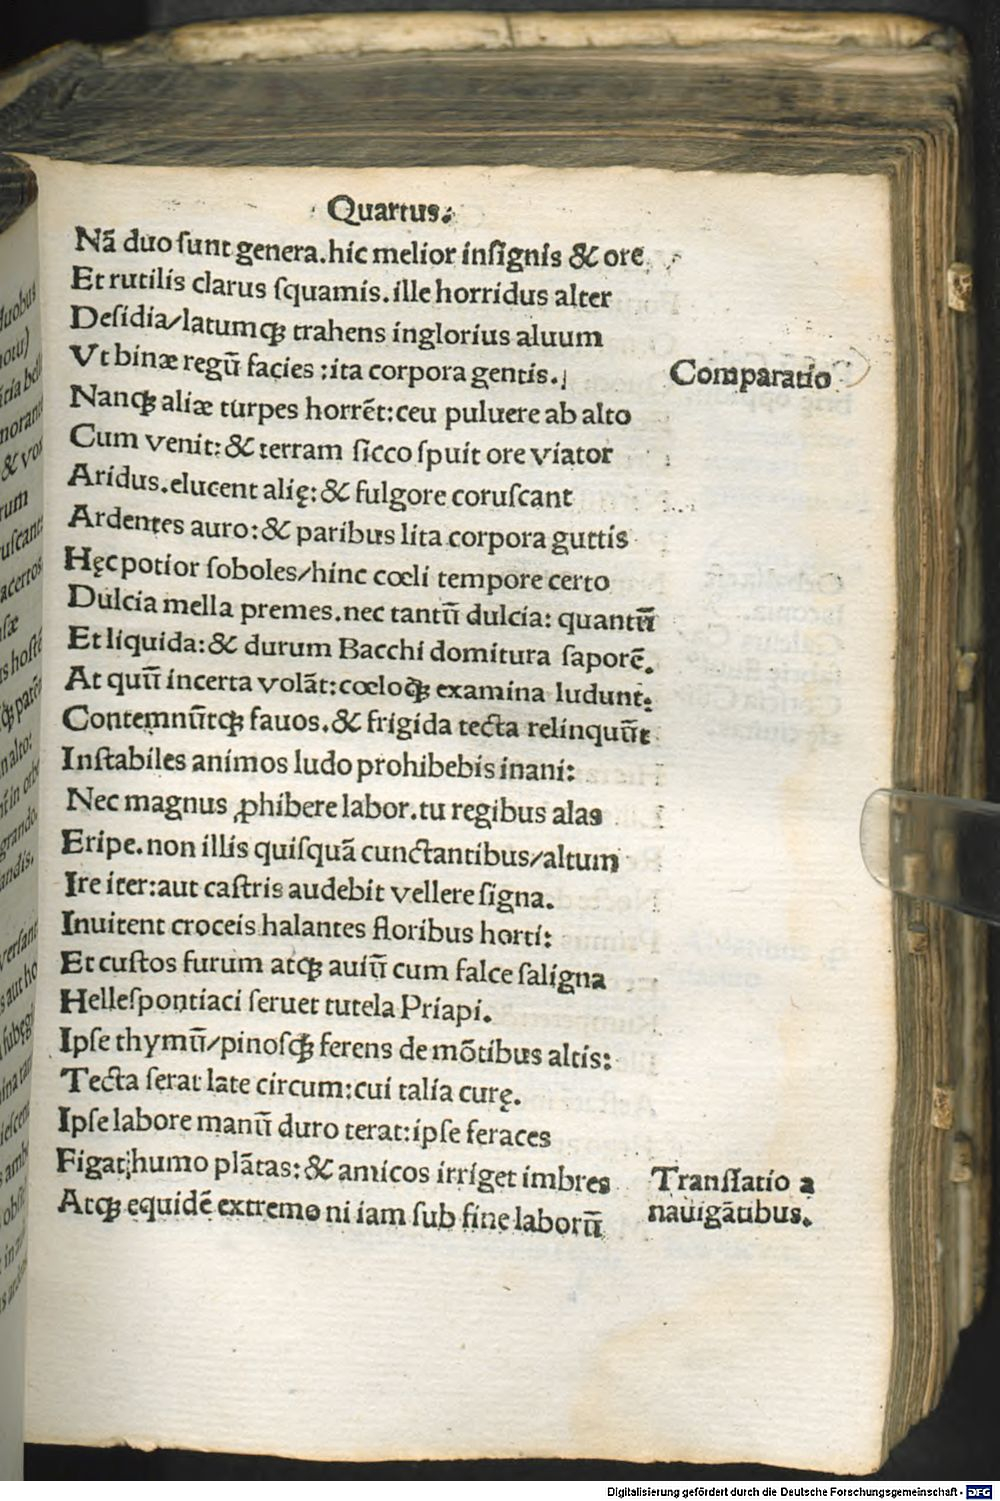 Quartus.
Nã duo ſunt genera.hic melior inſignis & ore
Et rutilis clarus ſquamis.ille horridus alter
Deſidia/latumqꝫ trahens inglorius aluum
Vt binæ regũ facies :ita corpora gentis.
Comparatio
Nanqꝫ aliæ turpes horrẽt:ceu puluere ab alto
Cum venit:& terram ſicco ſpuit ore viator
Aridus.elucent alię:& fulgore coruſcant
Ardentes auro:& paribus lita corpora guttis
Hęc potior ſoboles/hinc cœli tempore certo
Dulcia mella premes.nec tantũ dulcia: quantũ
Et liquida:& durum Bacchi domitura ſaporẽ.
At quũ incerta volãt:cœloqꝫ examina ludunt.
Contemnũtqꝫ fauos.& frigida tecta relinquũt
Inſtabiles animos ludo prohibebis inani:
Nec magnus ꝓhibere labor.tu regibus alas
Eripe.non illis quiſquã cunctantibus/altum
Ire iter:aut caſtris audebit vellere ſigna.
Inuitent croceis halantes floribus horti:
Et cuſtos furum atqꝫ auiũ cum falce ſaligna
Helleſpontiaci ſeruet tutela Priapi.
Ipſe thymũ/pinoſqꝫ ferens de mõtibus altis:
Tecta ſerat late circum:cui talia curę.
Ipſe labore manũ duro terat:ipſe feraces
Figat humo plãtas:& amicos irriget imbres
Atqꝫ equidẽ extremo ni iam ſub fine laborũ
Tranſlatio a
nauigãtibus.
duobus
motu)
norant
& vo
rum
uſcant
acertos
Digitalisierung gefördert durch die Deutsche Forschungsgemeinschaft - DFG